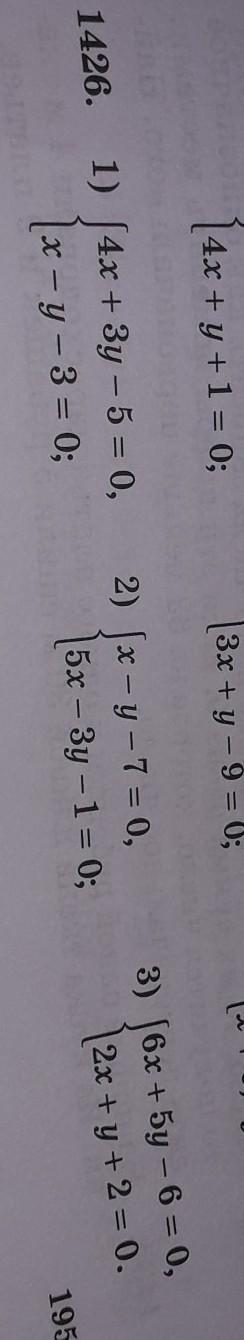 4x + y + 1 = 0; 3x + y − 9 = 0;
1426. 1) { 4x + 3y − 5 = 0, x − y − 3 = 0; 2) { x − y − 7 = 0, 5x − 3y − 1 = 0; 3) { 6x + 5y − 6 = 0, 2x + y + 2 = 0.
195